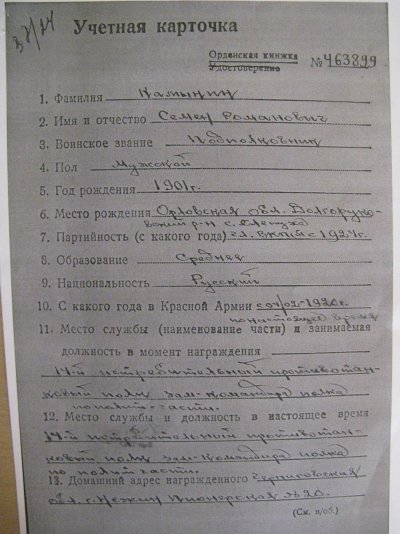 37/44
Учетная карточка
Орденская книжка
Удостоверение № 463899
1. Фамилия Камынин
2. Имя и отчество Семен Романович
3. Воинское звание Подполковник
4. Пол Мужской
5. Год рождения 1901г.
6. Место рождения Орловская обл. Долгоруко-
вский р-н с.
7. Партийность (с какого года) с 1924г.
8. Образование Среднее
9. Национальность Русский
10. С какого года в Красной Армии с 02-1920г.
по настоящее время
11. Место службы (наименование части) и занимаемая
должность в момент награждения
14-й истребительный противотан-
ковый полк зам-командира полка
по полит-части.
12. Место службы и должность в настоящее время
14-й истребительный противотан-
ковый полк зам-командира полка
по полит части.
13. Домашний адрес награжденного Черниговская
обл. г. Нежин Пионерская №20.
(См. н/об.)